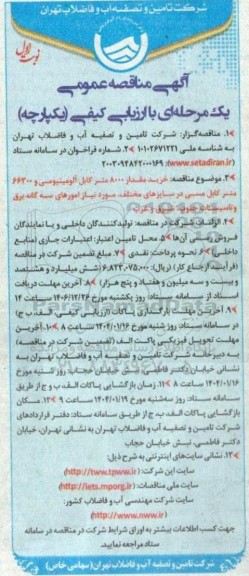 شرکت تامین و تصفیه آب و فاضلاب تهران
نوبت اول
آگهی مناقصه عمومی
یک مرحله‌ای با ارزیابی کیفی (یکپارچه)
۱. مناقصه‌گزار: شرکت تامین و تصفیه آب و فاضلاب تهران
به شناسه ملی ۱۰۱۰۲۶۷۱۲۲۱ ۲. شماره فراخوان در سامانه ستاد
(www.setadiran.ir): ۲۰۰۳۰۹۴۸۴۲۰۰۰۱۶۹
۳. موضوع مناقصه: خرید مقدار ۸۰۰۰ متر کابل آلومینیومی و ۶۶۳۰۰
متر کابل مسی در سایزهای مختلف، مورد نیاز امورهای سه گانه برق
و تاسیسات
۴. الزامات شرکت در مناقصه: تولیدکنندگان داخلی و یا نمایندگان
فروش رسمی آن‌ها ۵. محل تامین اعتبار: اعتبارات جاری (منابع
داخلی) ۶. نحوه پرداخت نقدی ۷. مبلغ تضمین شرکت در مناقصه
(فرآیند ارجاع کار) (ریال): ۶.۸۲۳.۰۷۵.۰۰۰ (شش میلیارد و هشتصد
و بیست و سه میلیون و هفتاد و پنج هزار) ۸. آخرین مهلت دریافت
اسناد از سامانه ستاد: روز یکشنبه مورخ ۱۴۰۳/۱۲/۲۶ ساعت ۱۴
۹. آخرین مهلت بارگذاری پاکات (ارزیابی کیفی، الف، ب، ج)
در سامانه ستاد: روز شنبه مورخ ۱۴۰۴/۰۱/۱۶ ساعت ۸ ۱۰. آخرین
مهلت تحویل فیزیکی پاکت الف (تضمین شرکت در مناقصه)
به دبیرخانه شرکت تامین و تصفیه آب و فاضلاب تهران به
نشانی خیابان دکتر فاطمی، نبش خیابان حجاب: روز شنبه مورخ
۱۴۰۴/۰۱/۱۶ ساعت ۸ ۱۱. زمان بازگشایی پاکات الف، ب و ج از طریق
سامانه ستاد: روز سه‌شنبه مورخ ۱۴۰۴/۰۱/۱۹ ساعت ۹ ۱۲. مکان
بازگشایی پاکات الف، ب، ج از طریق سامانه ستاد: دفتر قراردادهای
شرکت تامین و تصفیه آب و فاضلاب تهران به نشانی تهران، خیابان
دکتر فاطمی، نبش خیابان حجاب
۱۳. نشانی سایت‌های اینترنتی به شرح ذیل:
سایت این شرکت: (http://tww.tpww.ir)
سایت ملی مناقصات: (http://iets.mporg.ir)
سایت شرکت مهندسی آب و فاضلاب کشور:
(http://www.nww.ir)
جهت کسب اطلاعات بیشتر به اوراق شرایط شرکت در مناقصه در سامانه
ستاد مراجعه نمایید.
شرکت تامین و تصفیه آب و فاضلاب تهران (سهامی خاص)